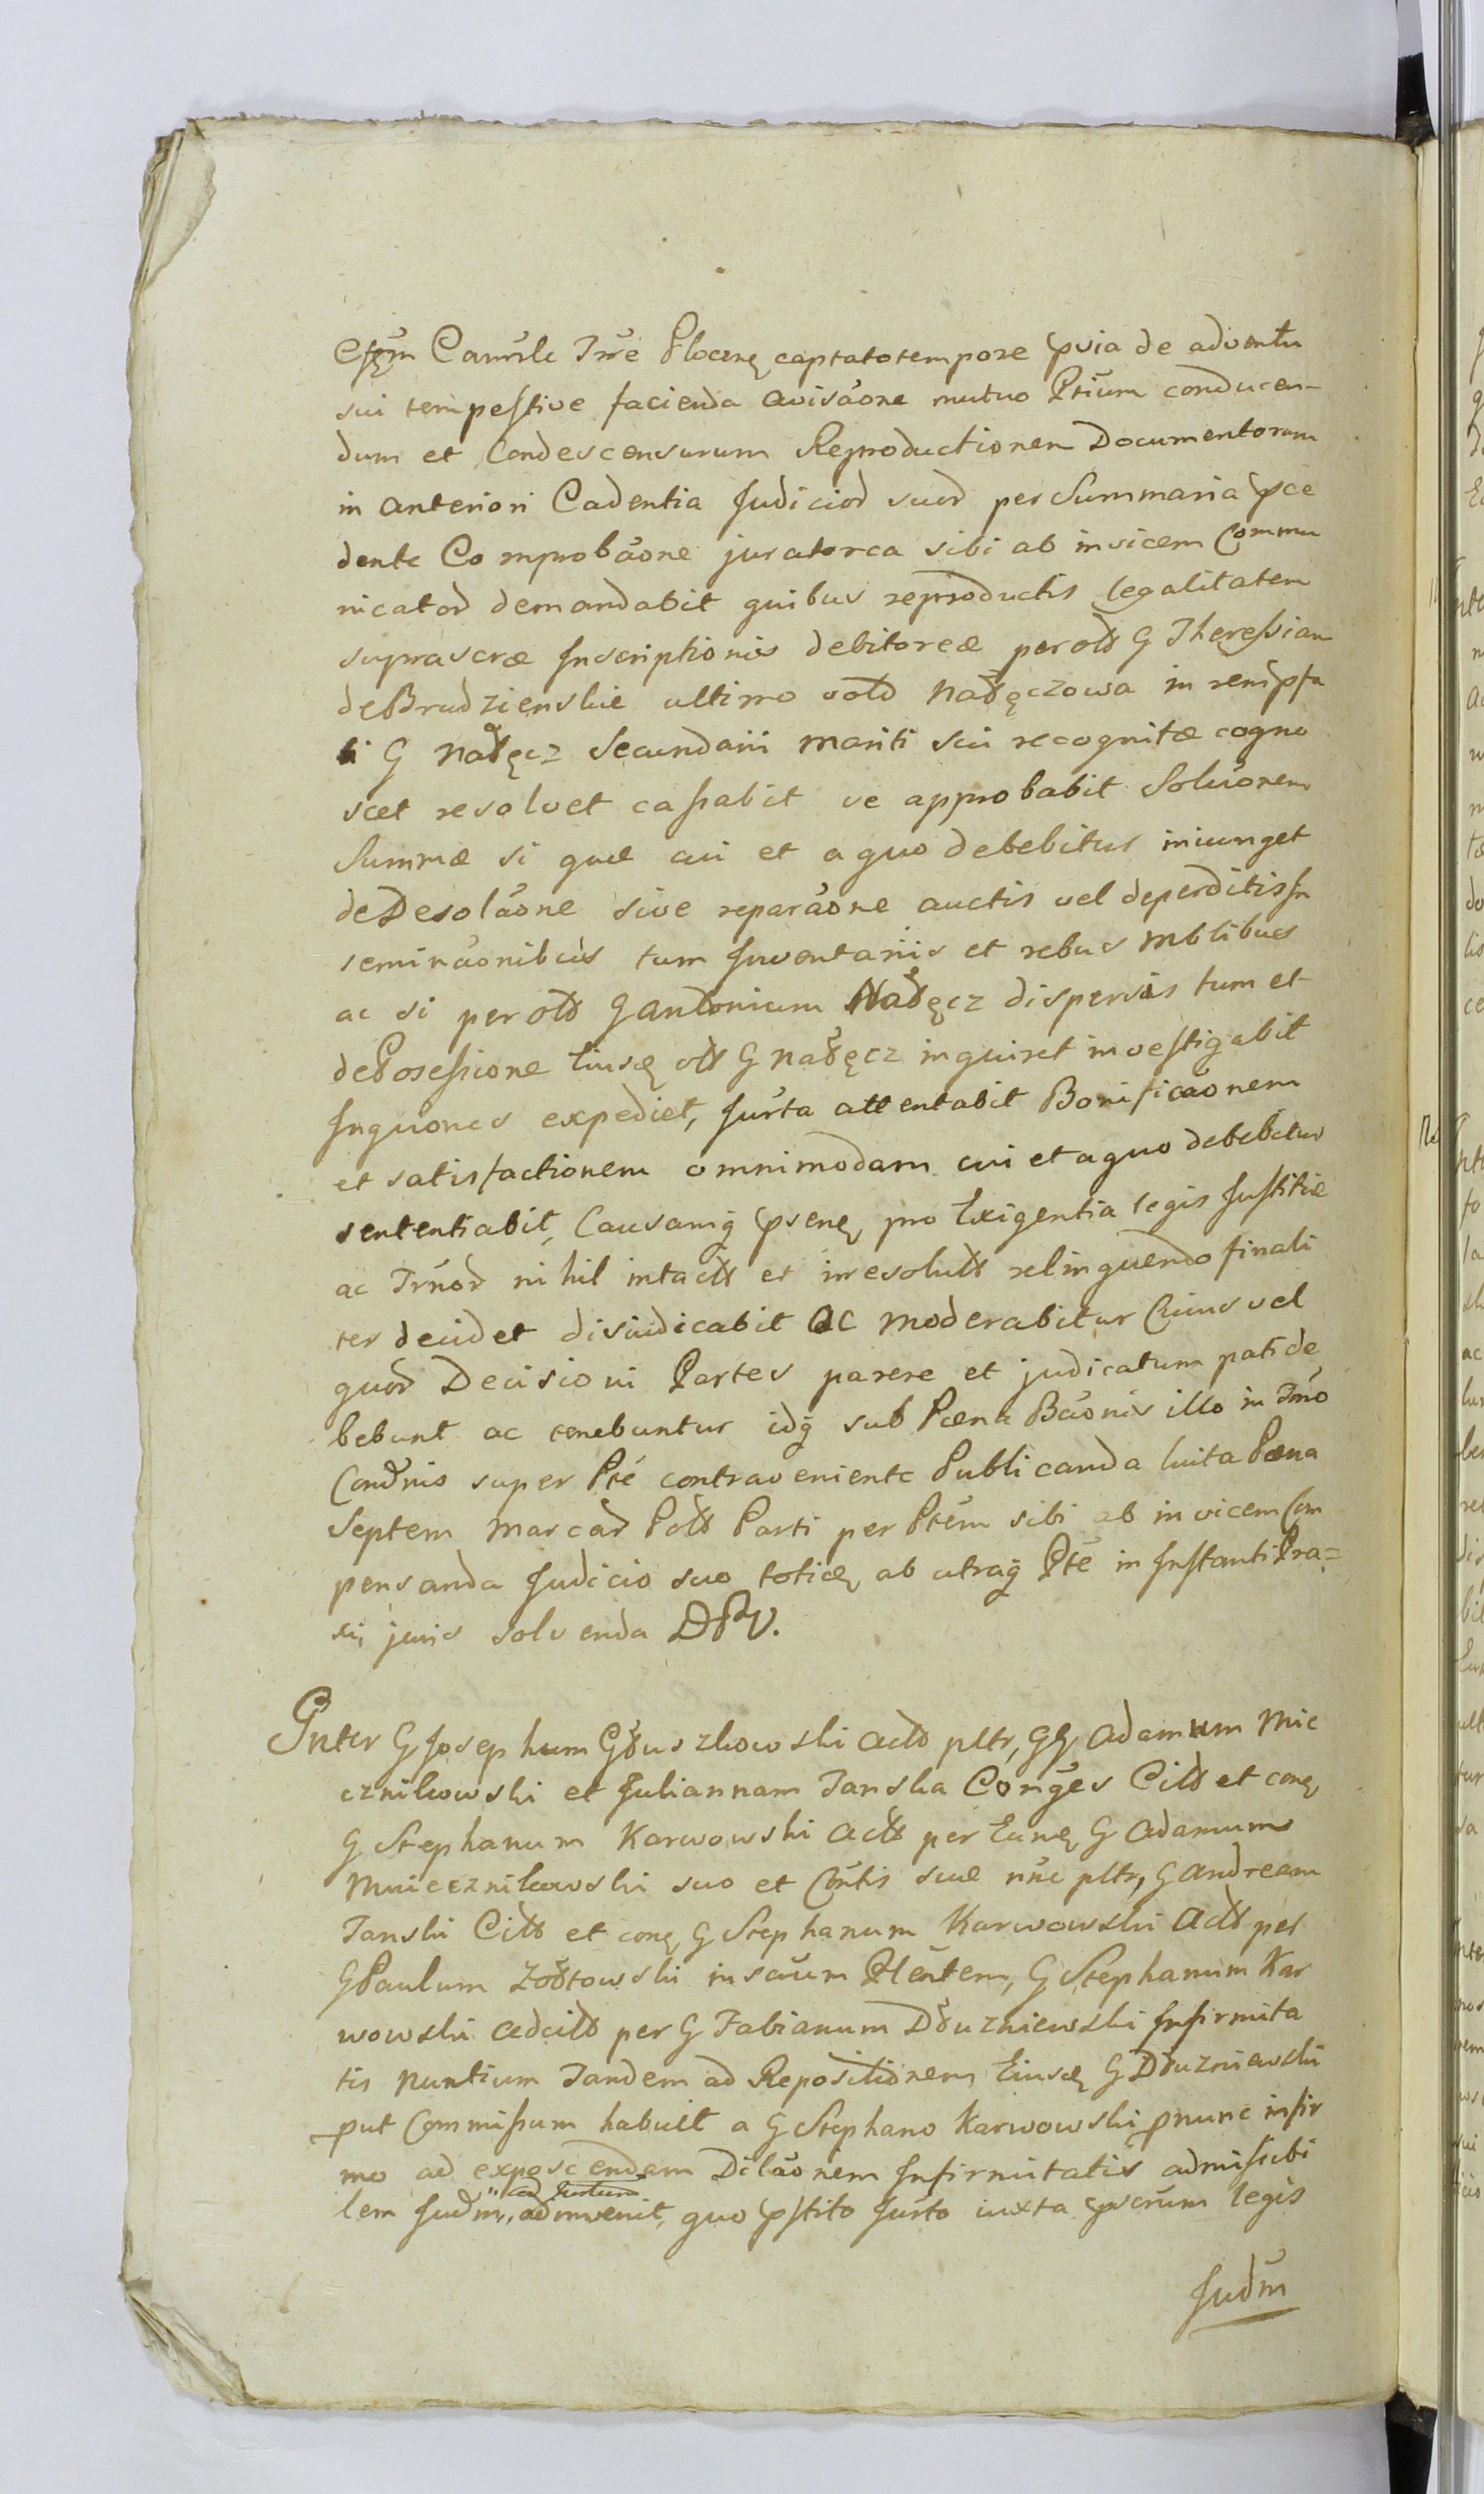 Camrle Trre Plocenę captato tempore pvia de adventu
sui tempestive facienda avisaone mutuo Ptium conducen-
dum et Condescensurum Reproductionem Documentorum
in anteriori Cadentia Judicior suor per Summaria pce
dente Comprobaone juratorea sibi ab invicem Commu
nicator demandabit quibus reproductis legalitatem
suprascræ Inscriptionis debitoreæ per olt G Theressiam
de Brudzienskie ultimo voto Nałęczowa in rem ipsa
G Nałęcz secundarii mariti sui recognitæ cogno
scet resolvet cassabit ve approbabit Soluonem
Summæ si quæ cui et a quo debebitur iniunget
de Desolaone sive reparaone auctis vel deperditis In
seminaonibus tum Inventariis et rebus mblibus
ac si per olt G Antonium Nałęcz dispersis tum et
de Posessione Eiusd olt G Nałęcz inquiret investigabit
Inquiones expediet, Jurta attentabit Bonificaonem
et satisfactionem omnimodam cui et a quo debebitur
sententiabit, Causamq psenę pro Exigentia legis Justitiæ
ac Trnor nihil intactt et irresolutt relinquendo finali
ter decidet disiudicabit ac moderabitur Cuius vel
quor Decisioni Partes parere et judicatum pati de
bebunt ac tenebuntur idq sub Pæna Baonis illo in Tmo
Condnis super Pte contraveniente Publicanda luita Pæna
Septem marcar Poltt Parti per Ptem sibi ab invicem Com
pensanda Judicio suo toties ab utraq Pte in Instanti Pra=
xi, juris solvenda DPV.
Inter G Josephum Głuszkowski Actt pltr, GG Adamum Mie
cznikowski et Juliannam Janska Conges Citt et conę
G Stephanum Karwowski Actt per Eunę G Adamum
Mniecznikowski suo et Contis suæ nnc pltr, G Andream
Janski Citt et conę G Stephanum Karwowski Actt per
G Paulum Zołtowski in scrum Plentem, G Stephanum Kar
wowski adcitt per G Fabianum Dłuzniewski Infirmita
tis Nuntium Tandem ad Repositionem Eiusd G Dłuzniewski
put Commissum habuit a G Stephano Karwowski pnunc infir
mo ad exposcendam Dilaonem Infirmitatis admissibi
lem Judm,, ad Jurtum
admvenit, quo pstito Jurto iuxta pscrum legis
Judm